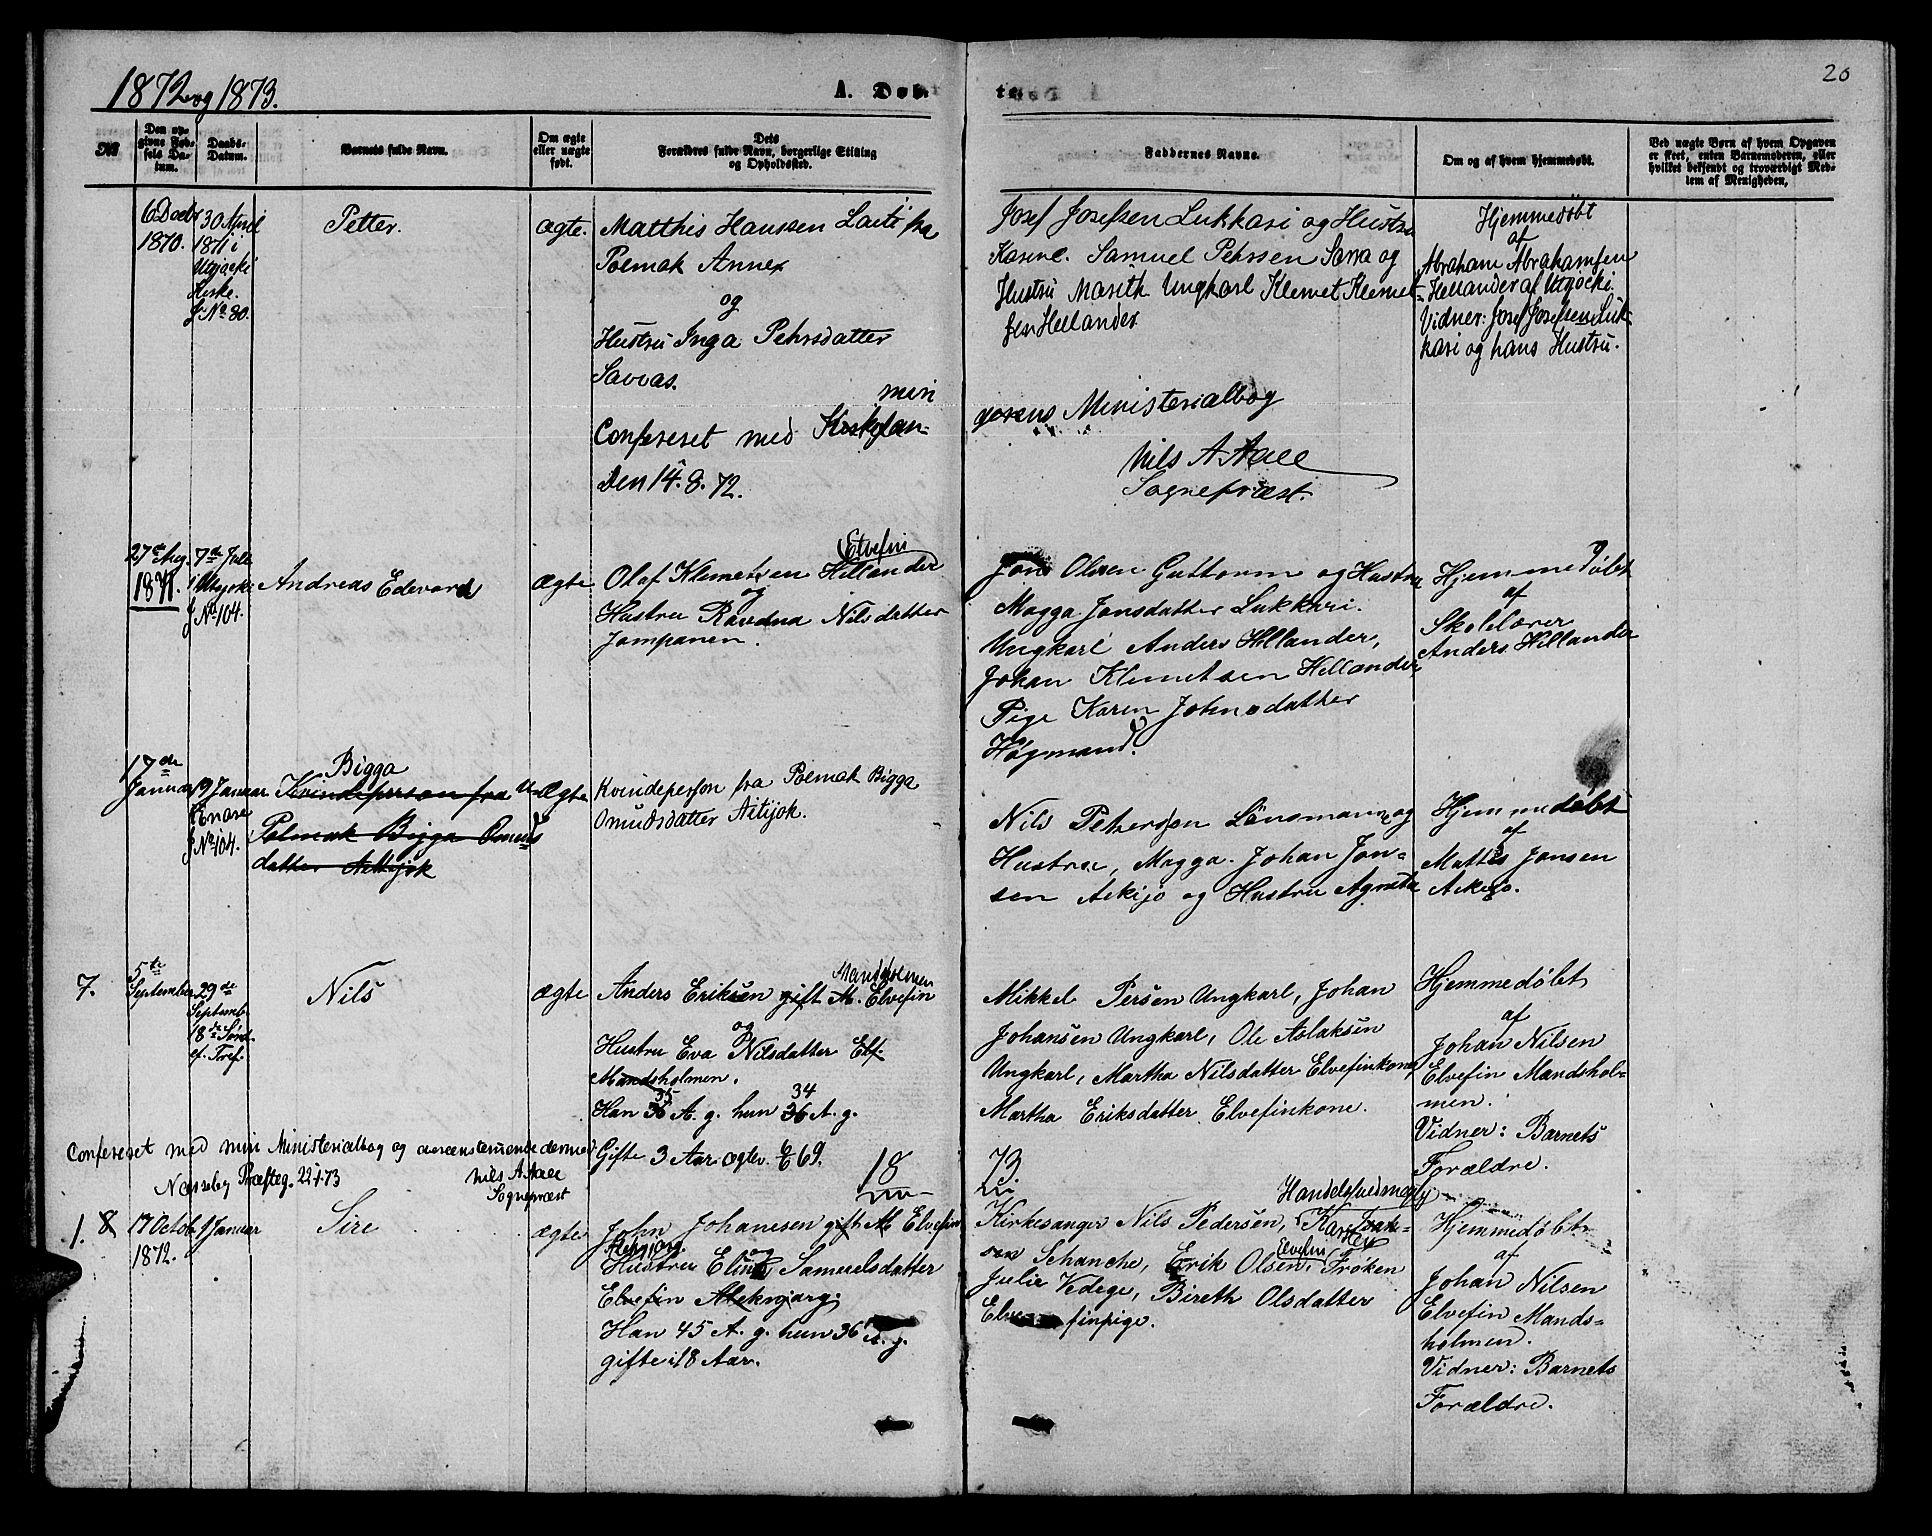 1872 og 1873.
A. Døbte.
20
№
Den opgivne Fødsels Datum.
Daabs-Datum.
Barnets fulde Navn.
Om ægte eller uægte født.
Dets Forældres fulde Navn, borgerlige Stilling og Opholdssted.
Faddernes Navne.
Om og af hvem hjemmedøbt.
Ved uægte Børn af hvem Opgaven er skeet, enten Barnemoderen, eller hvilket bekjendt og troværdigt Medlem af Menigheden,
6 Decbr
1870.
30 April
1871 i
Utsjocki
Kirke.
J. No 80.
Petter.
ægte.
Matthis Hansen Laiti fra
Polmak Annex
og
Hustru Inga Pehrsdatter
Savvas.
Josef Josefsen Lukkari og Hustru
Karine. Samuel Pehrsen Sarra og
Hustru Marith Ungkarl Klemet Klemet-
sen Hellander
Hjemmedøbt
af
Abraham Abrahamsen
Hellander af Utsjocki.
Vidner: Josef Josefsen Luk-
kari og hans Hustru.
Confereret med min
den 14. 8. 72.
Ministerialbog
Nils A Aall
Sognepræst.
27de Aug.
1871.
7de Juli
i Utsjoki
J No 104.
Andreas Edevard
ægte
Olaf Klemetsen Hillander
Elvefin
og
Hustru Ravdna Nilsdatter
Jompanen.
Jon Olsen Guttorm og Hustru
Magga Jonsdatter Lukkari.
Ungkarl Anders Hillander,
Johan Klemetsen Hellander,
Pige Karen Johnsdatter
Høgmand.
Hjemmedøbt
af
Skolelærer
Anders Hillander
17de
Januar
19 Januar
Enare
J No 104.
Bigga
Kvindeperson fra
Polmak Bigga Omunds
datter Aitijok
uægte
Kvindeperson fra Polmak Bigga
Omundsdatter Aitijok.
Nils Peherson Lensmann og
Hustru, Magga. Johan Jon-
sen Aikijo og Hustru Agneta
Hjemmedøbt
af
Mattis Jonsen
Aikijo.
7.
5te
September
29de
Septemb.
18de Sønd.
ef. Tref.
Nils
ægte
Mandsholmen
Anders Eriksen gift M. Elvefin
og
Hustru Eva Nilsdatter Elf-
Mandsholmen.
35 34
Han 36 A. g. hun 36 A. g.
Gifte 3 Aar ægtev. 6/6 69.
Mikkel Persen Ungkarl, Johan
Johansen Ungkarl, Ole Aslaksen
Ungkarl, Martha Nilsdatter Elvefinkone,
Martha Eriksdatter Elvefinkone.
Hjemmedøbt
af
Johan Nilsen
Elvefin Mandshol-
men.
Vidner: Barnets
Forældre.
Confereret med min Ministerialbog og overensstemmende dermed
Næsseby Præsteg. 22/1 73
Nils A Aall
Sognepræst
18 73
1. 8
17 Octob
1872.
1 Januar
Sire
ægte
John Johanesen gift M Elvefin
og
Hustru Elina Samuelsdatter
Elvefin Aleknjarg.
Han 45 A. g. hun 36 A. g.
gifte i 18 Aar.
Handelsfuldmægtig
Kirkesanger Nils Pedersen, Karsten Isak-
sen Schanche, Erik Olsen, Elvefin, Frøken
Julie Kedege, Bireth Olsdatter
Elvefinpige.
Hjemmedøbt
af
Johan Nilsen
Elvefin Mands-
holmen.
Vidner: Barnets
Forældre.